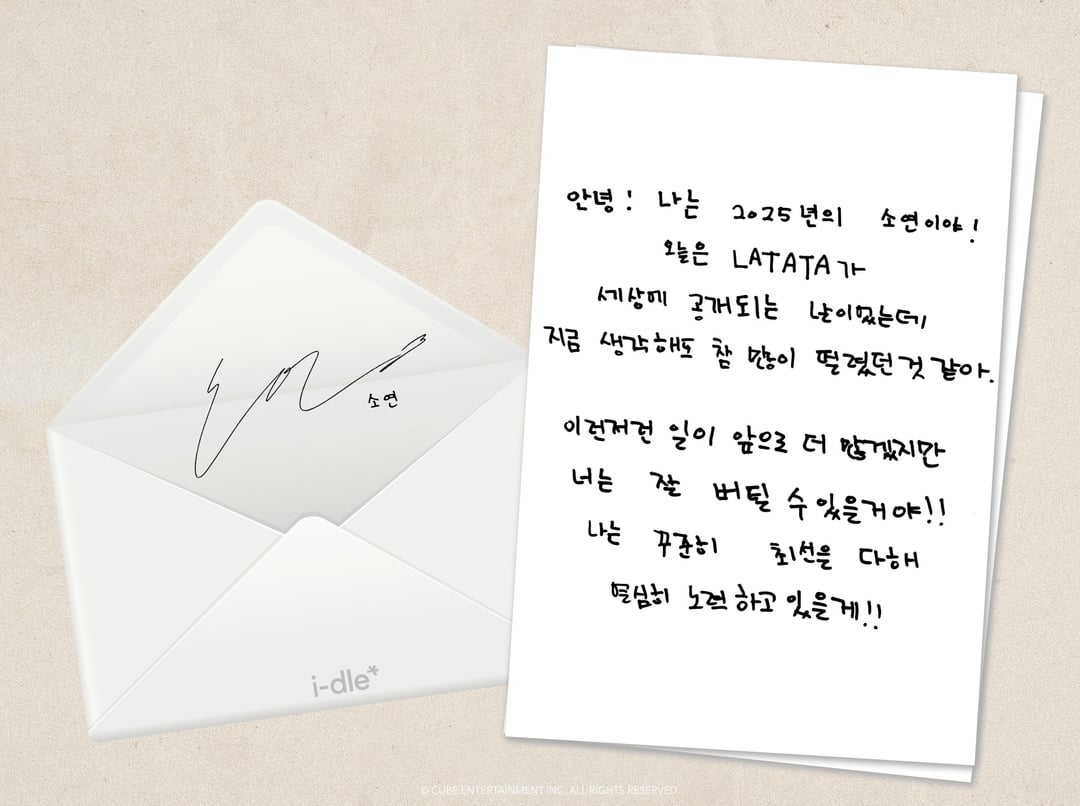 안녕! 나는 2025년의 소연이야!
오늘은 LATATA가
세상에 공개되는 날이었는데
지금 생각해도 참 많이 떨렸던 것 같아.
이런저런 일이 앞으로 더 많겠지만
너는 잘 버틸 수 있을거야!!
나는 꾸준히 최선을 다해
열심히 노력하고 있을게!!
소연
i-dle*
© CUBE ENTERTAINMENT INC. ALL RIGHTS RESERVED